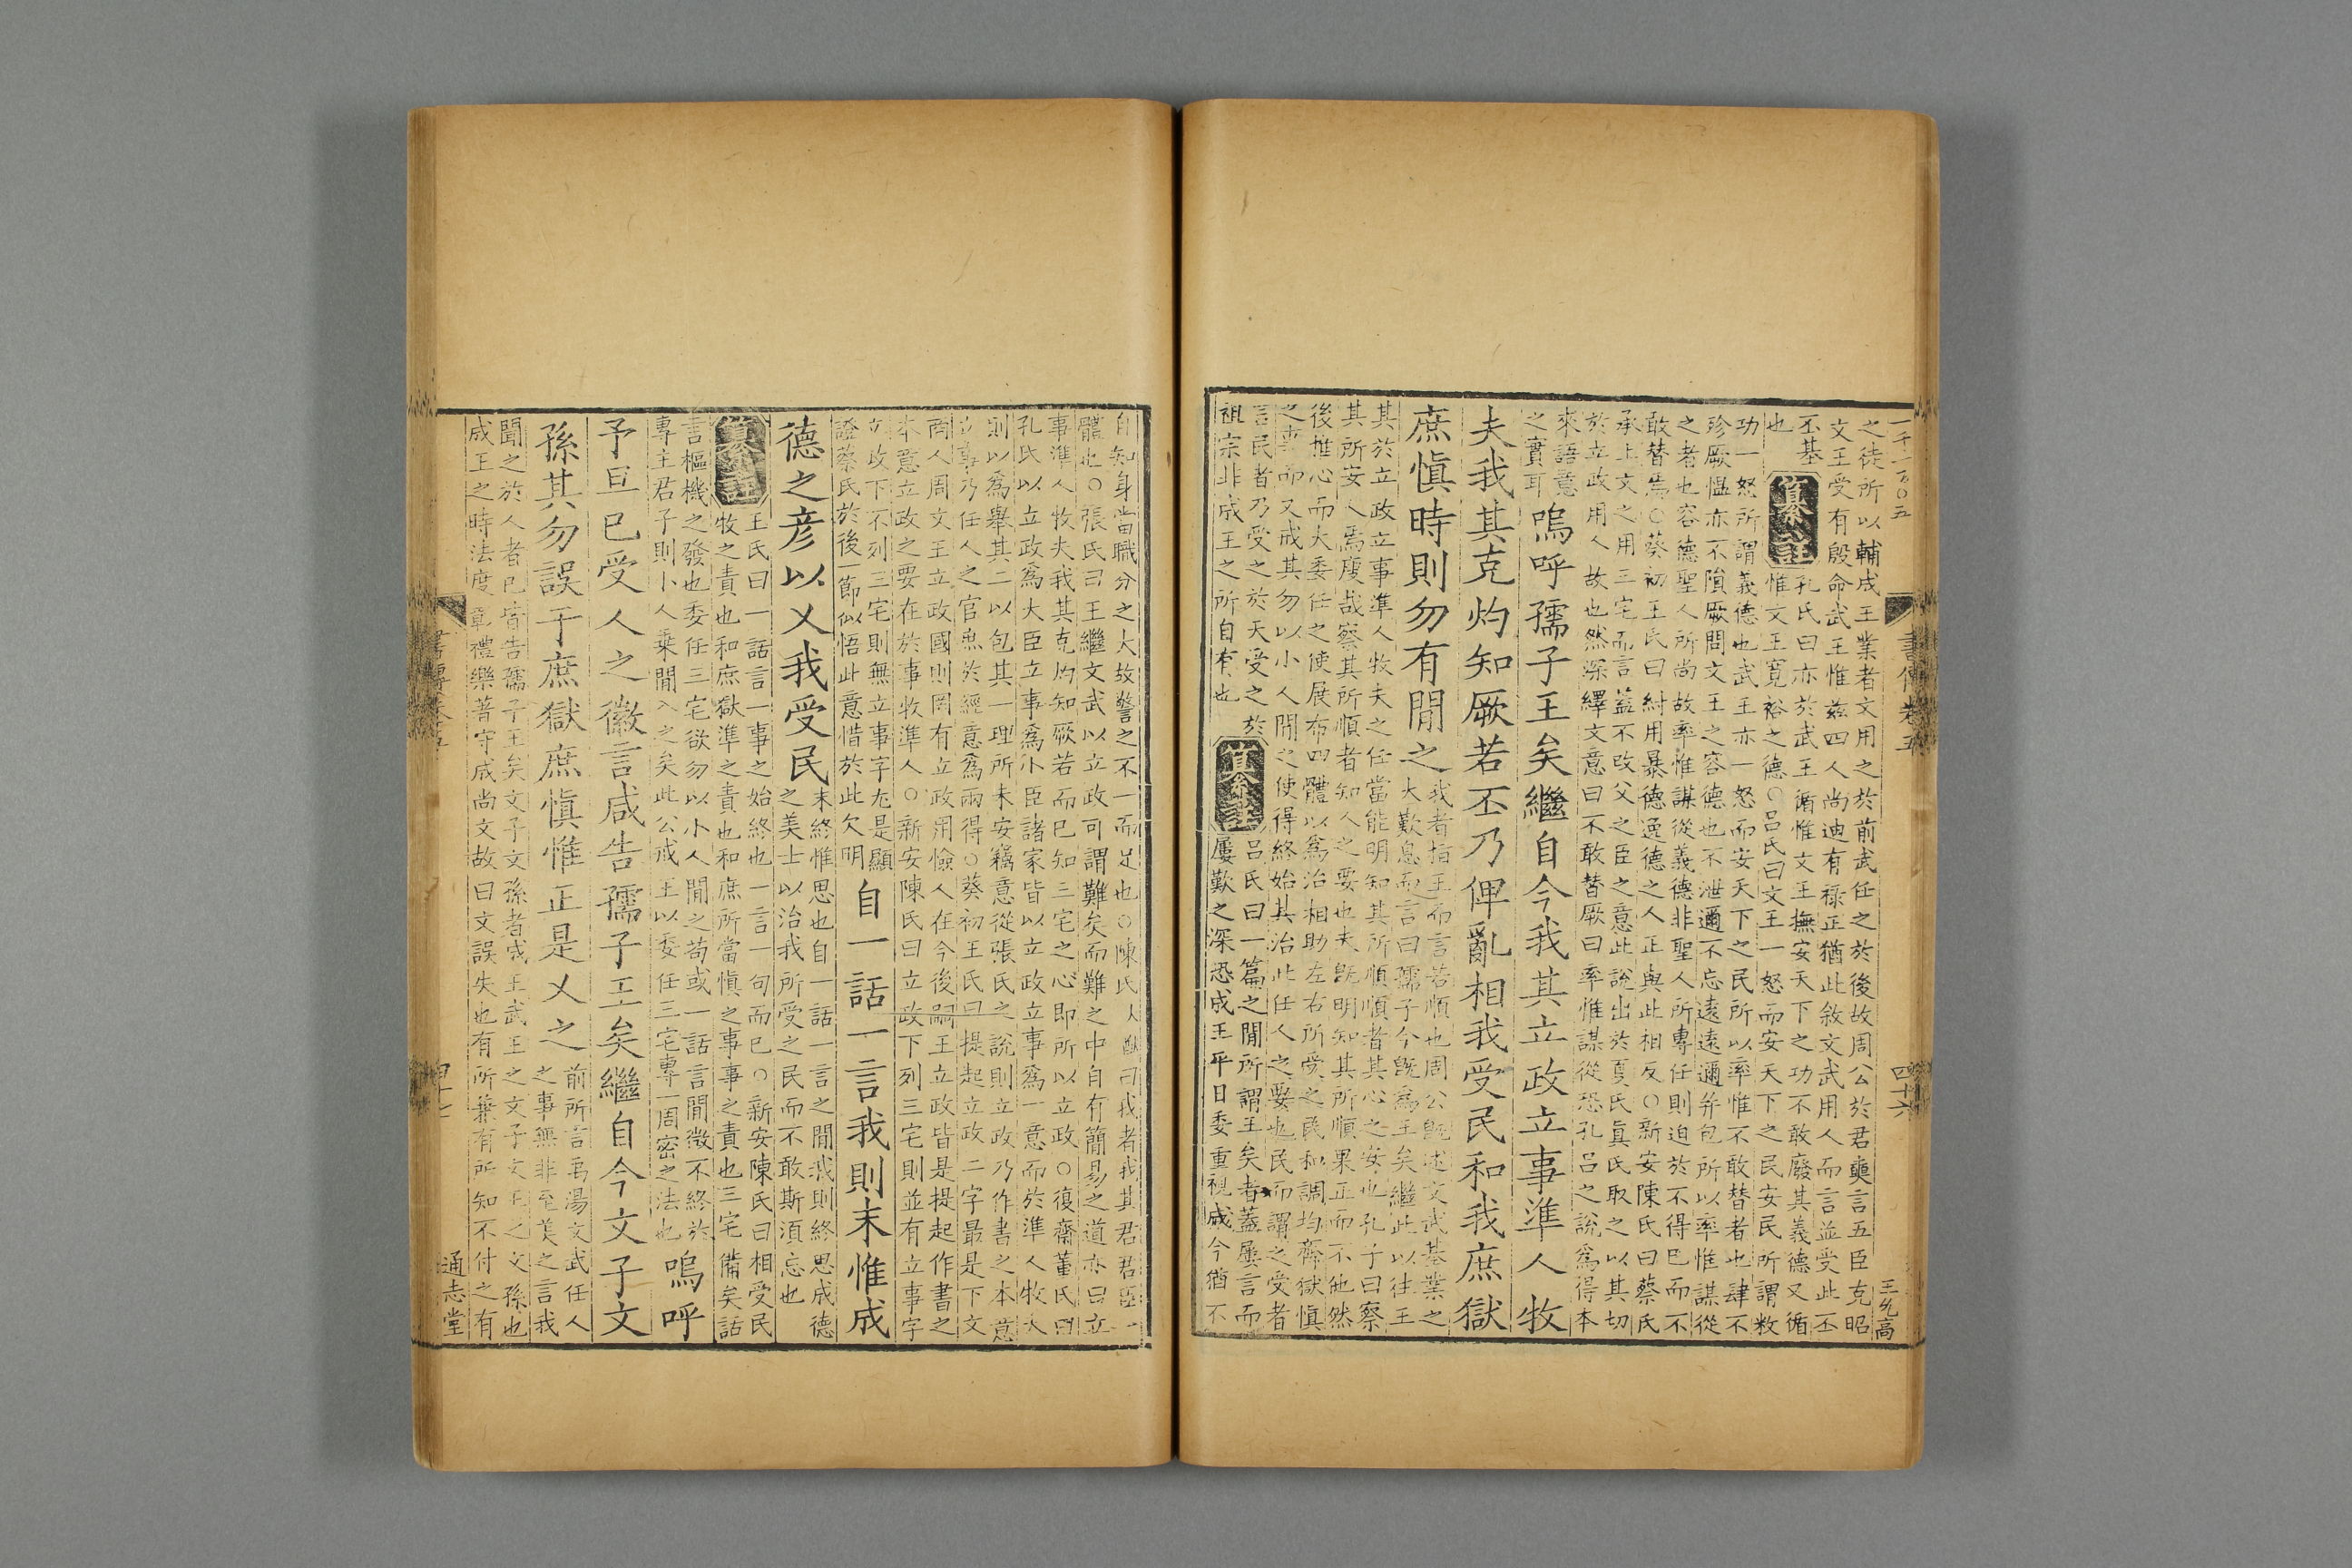 一千二百〇五
書傳卷五
四十六
王允高
之徒所以輔成王業者文用之於前武任之於後故周公於君奭言五臣克昭
文王受有殷命武王惟茲四人尚迪有祿正猶此敘文武用人而言並受此丕
丕基
也
纂註
孔氏曰亦於武王循惟文王撫安天下之功不敢廢其義德又循
惟文王寬裕之德○呂氏曰文王一怒而安天下之民安民所謂敉
功一怒所謂義德也武王亦一怒而安天下之民所以率惟不敢替者也肆不
殄厥慍亦不隕厥問文王之容德也不泄邇不忘遠遠邇并包所以率惟謀從
之者也容德聖人所尚故率惟謀從義德非聖人所專任則迫於不得已而不
敢替焉○葵初王氏曰紂用暴德逸德之人正與此相反○新安陳氏曰蔡氏
承上文之用三宅而言蓋不改父之臣之意此說出於夏氏真氏取之以其切
於立政用人故也然深繹文意曰不敢替厥曰率惟謀從恐孔呂之說爲得本
來語意
之實耳
嗚呼孺子王矣繼自今我其立政立事準人牧
夫我其克灼知厥若丕乃俾亂相我受民和我庶獄
庶愼時則勿有閒之
我者指王而言若順也周公旣述文武基業之
大歎息而言曰孺子今旣爲王矣繼此以往王
其於立政立事準人牧夫之任當能明知其所順順者其心之安也孔子曰察
其所安人焉廋哉察其所順者知人之要也夫旣明知其所順果正而不他然
後推心而大委任之使展布四體以爲治相助左右所受之民和調均齊獄愼
之事而又戒其勿以小人閒之使得終始其治此任人之要也民而謂之受者
言民者乃受之於天受之於
祖宗非成王之所自有也
纂註
呂氏曰一篇之閒所謂王矣者蓋屢言而
屢歎之深恐成王平日委重視成今猶不
自知身當職分之大故警之不一而足也○陳氏大猷曰我者我其君君臣一
體也○張氏曰王繼文武以立政可謂難矣而難之中自有簡易之道亦曰立
事準人牧夫我其克灼知厥若而已知三宅之心即所以立政○復齋董氏曰
孔氏以立政爲大臣立事爲小臣諸家皆以立政立事爲一意而於準人牧夫
則以爲舉其二以包其一理所未安竊意從張氏之說則立政乃作書之本意
立事乃任人之官焉於經意爲兩得○葵初王氏曰提起立政二字最是下文
商人周文王立政國則罔有立政用憸人在今後嗣王立政皆是提起作書之
本意立政之要在於事牧準人○新安陳氏曰立政下列三宅則並有立事字
立政下不列三宅則無立事字尤是顯
證蔡氏於後一節似悟此意惜於此欠明
自一話一言我則末惟成
德之彥以乂我受民
末終惟思也自一話一言之閒我則終思成德
之美士以治我所受之民而不敢斯須忘也
纂註
王氏曰一話言一事之始終也一言一句而已○新安陳氏曰相受民
牧之責也和庶獄準之責也和庶所當愼之事事之責也三宅備矣話
言樞機之發也委任三宅欲勿以小人閒之苟或一話言閒微不終於
專主君子則小人乘閒入之矣此公戒王以委任三宅專一周密之法也
嗚呼
予旦已受人之徽言咸告孺子王矣繼自今文子文
孫其勿誤于庶獄庶愼惟正是乂之
前所言禹湯文武任人
之事無非至美之言我
聞之於人者已皆告孺子王矣文子文孫者成王武王之文子文王之文孫也
成王之時法度彰禮樂著守成尚文故曰文誤失也有所兼有所知不付之有
書傳卷五
四十七
通志堂